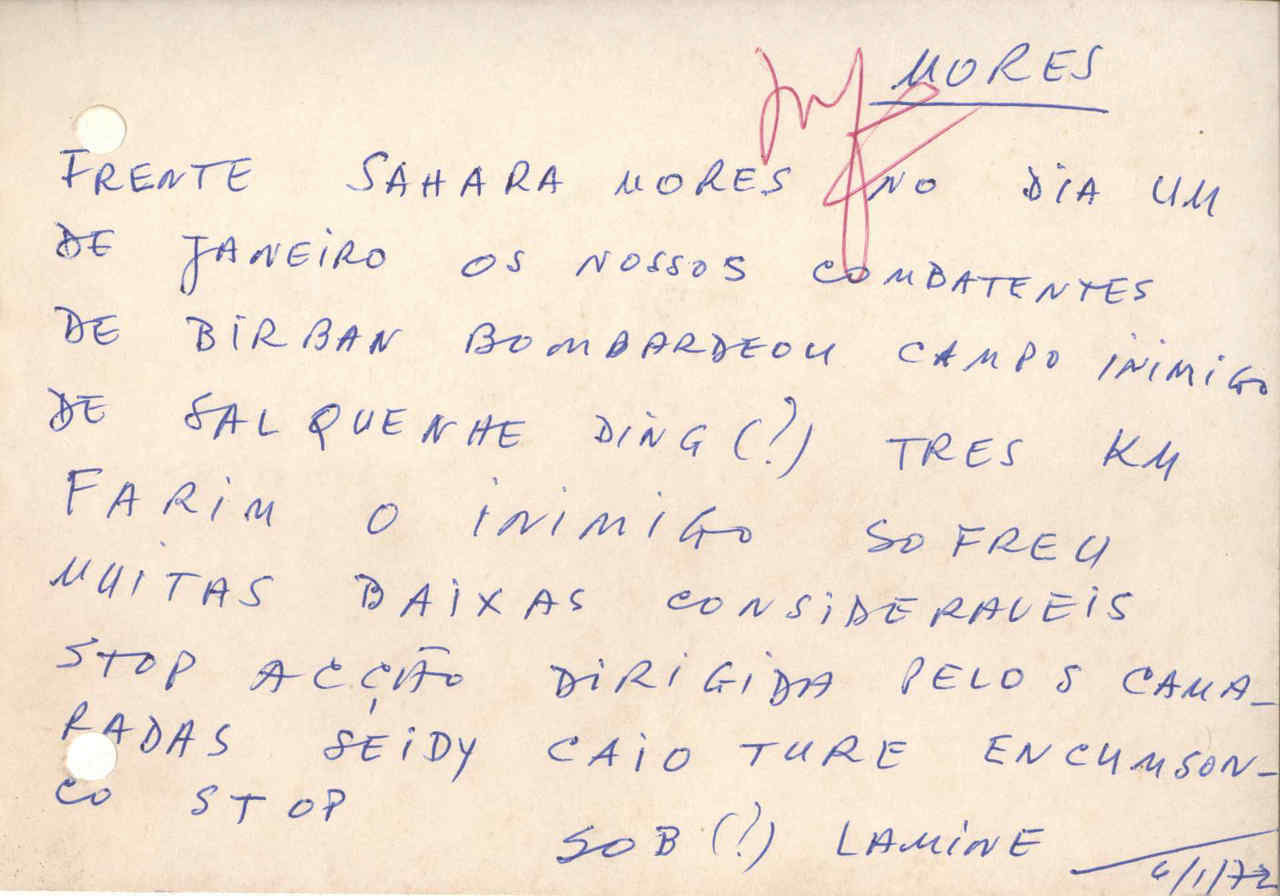 MORES
FRENTE SAHARA MORES NO DIA UM
DE JANEIRO OS NOSSOS COMBATENTES
DE BIRBAN BOMBARDEOU CAMPO INIMIGO
DE SALQUENHE DING (?) TRES KM
FARIM O INIMIGO SOFREU
MUITAS BAIXAS CONSIDERAVEIS
STOP ACÇÃO DIRIGIDA PELOS CAMA-
RADAS SEIDY CAIO TURE ENCUMSON-
CO STOP
SOB (?) LAMINE
6/1/72